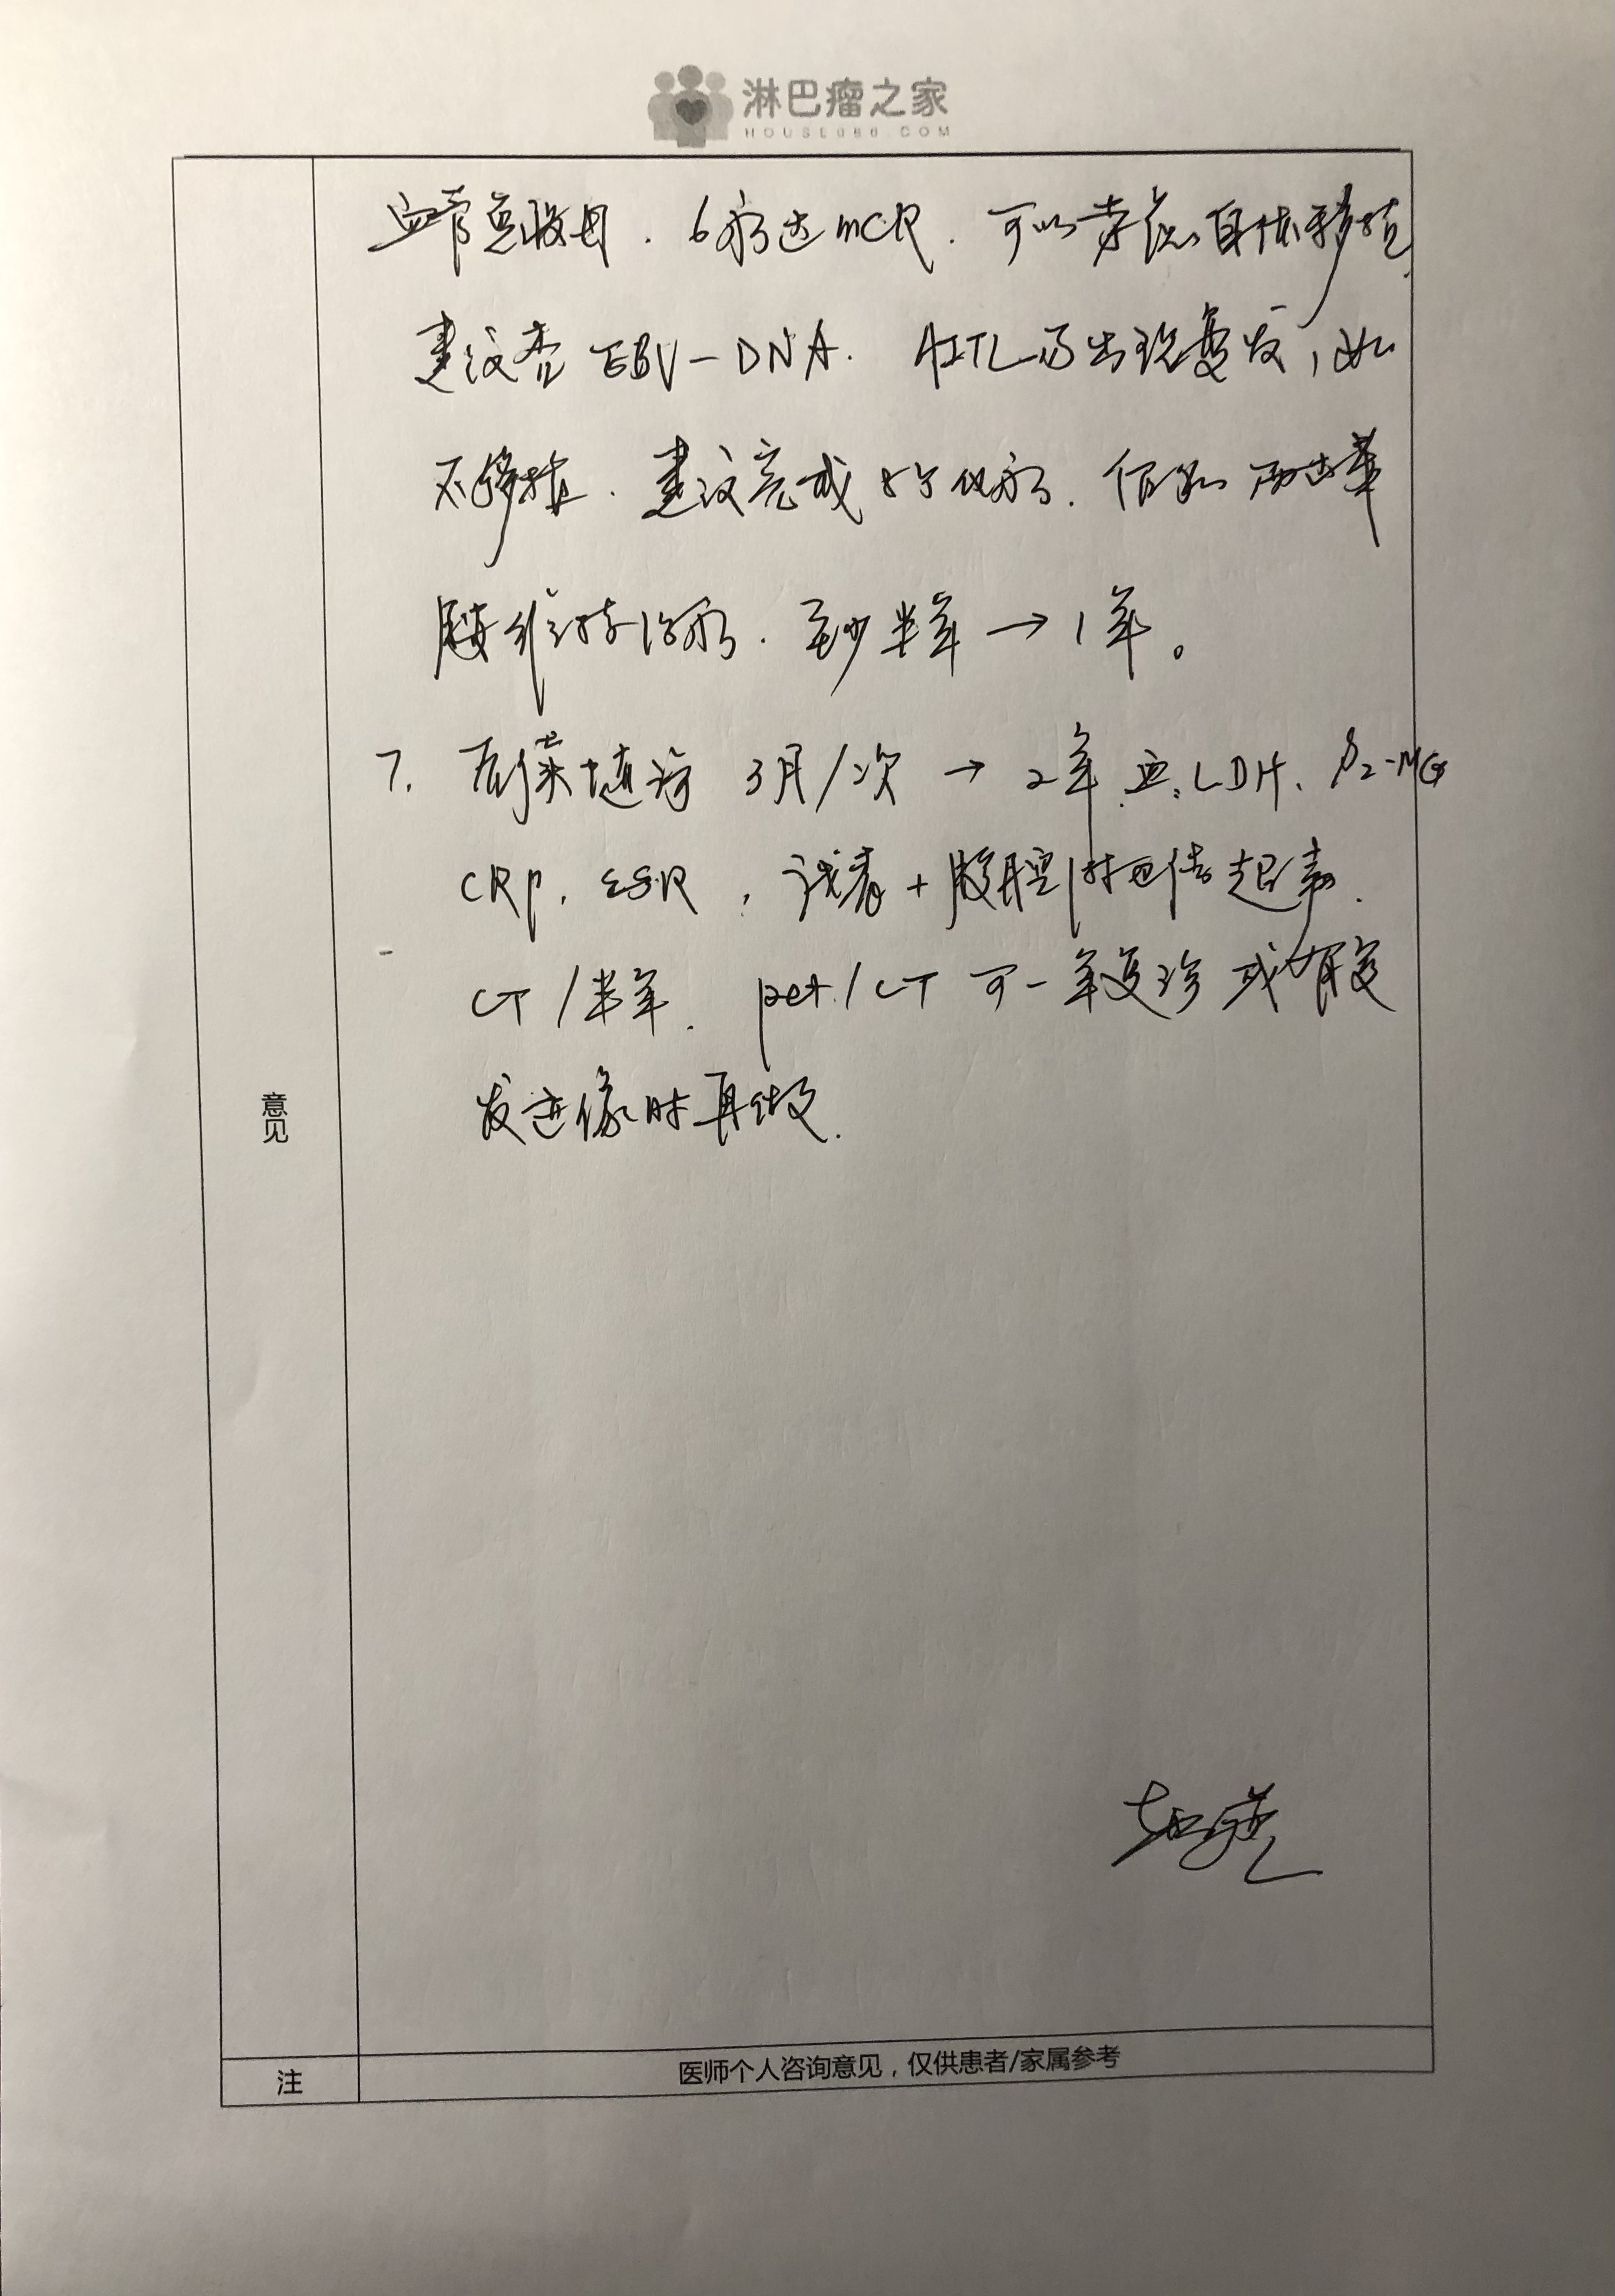 淋巴瘤之家
HOUSE086.COM
血管免疫母. 6疗达mCR. 可以考虑自体移植,
建议查 EBV-DNA. AITL易出现复发, 如
不移植. 建议完成8个化疗. 西达苯
胺维持治疗. 至少半年 → 1年。
7. 后续随访 3月/次 → 2年 血: LDH. β2-MG
CRP. ESR, 浅表+腹腔 超声.
CT/半年. pet/CT 可一年复诊 或有复
发迹象时再做.
意见
注
医师个人咨询意见，仅供患者/家属参考